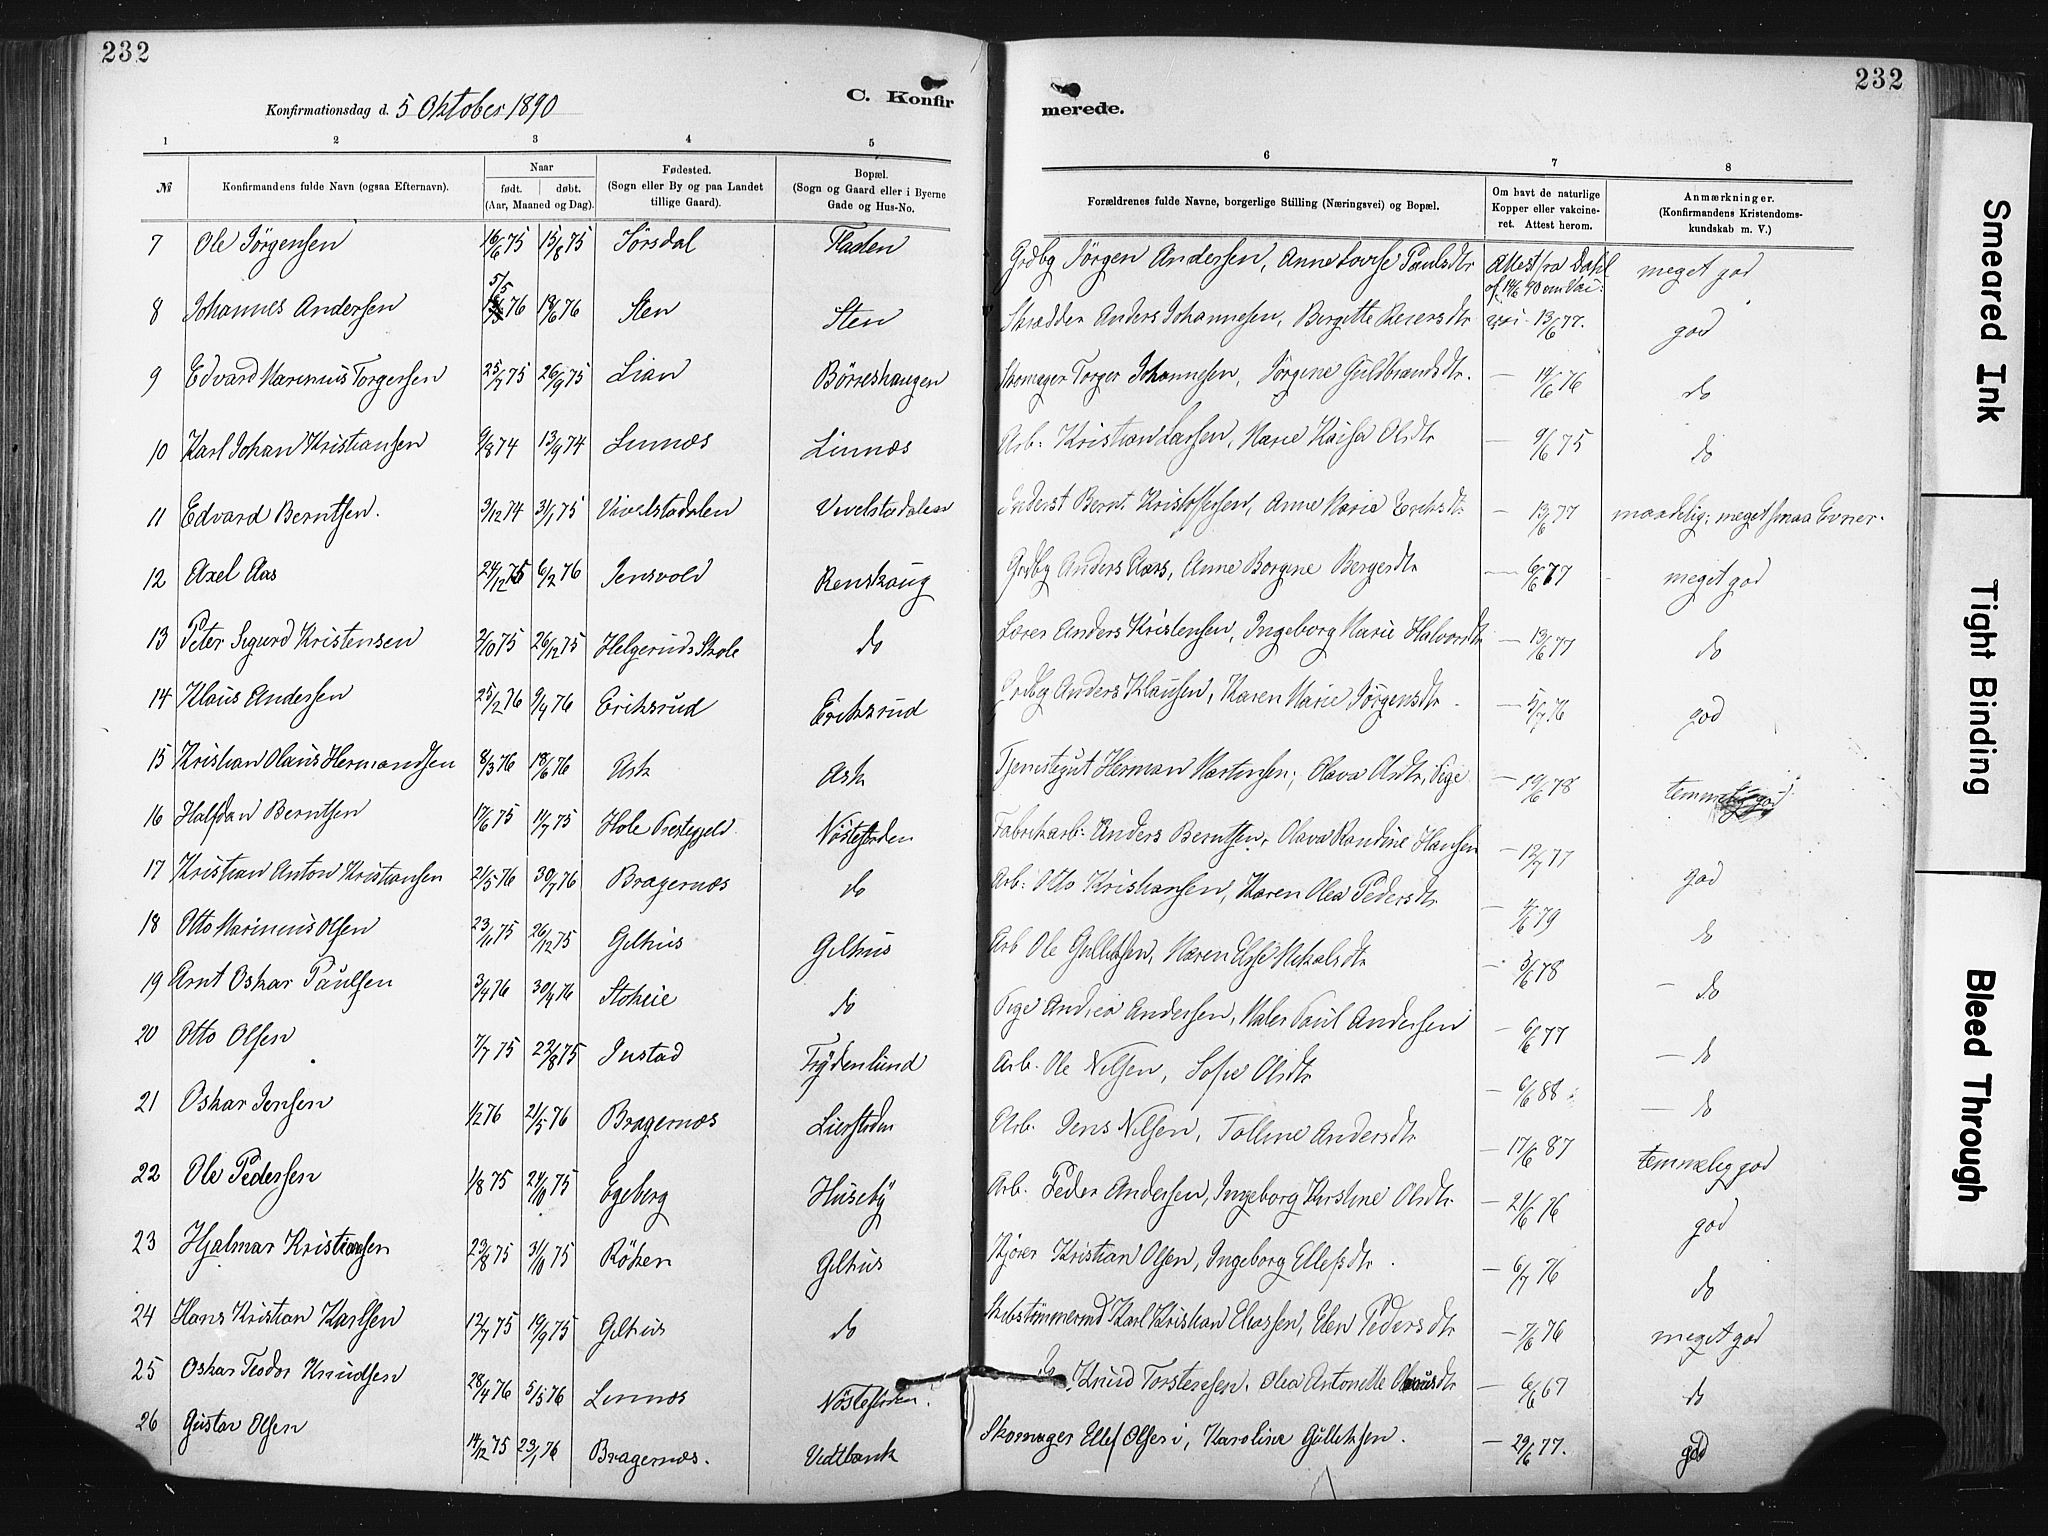 232
Konfirmationsdag d. 5 Oktober 1890
C. Konfir
merede.
232
1 2 3 4 5 6 7 8
№ Konfirmandens fulde Navn (ogsaa Efternavn). Naar født. døbt. (Aar, Maaned og Dag). Fødested. (Sogn eller By og paa Landet tillige Gaard). Bopæl. (Sogn og Gaard eller i Byerne Gade og Hus-No. Forældrenes fulde Navne, borgerlige Stilling (Næringsvei) og Bopæl. Om havt de naturlige Kopper eller vakcineret. Attest herom. Anmærkninger. (Konfirmandens Kristendomskundskab m. V.)
7 Ole Jörgensen 16/6 75 15/8 75 Jörsdal Flaten Grdbg Jörgen Andersen, Anne Lovise Paulsdtr Attest fra Dahl af 14/6 90 om Vac: meget god
8 Johannes Andersen 5/5 76 18/6 76 Sten Sten Skrædder Anders Johannesen, Bergitte 13/6 77. god
9 Edvard Marinius Torgersen 25/7 75 26/9 75 Lian Börreshaugen Skomager Torger Johannesen, Jörgine Guldbrandsdtr. — 14/6 76 do
10 Karl Johan Kristiansen 9/8 74 13/9 74 Linnæs Linnæs Arb. Kristian Larsen, Marie Kaisa Olsdtr — 9/6 75 do
11 Edvard Berntsen. 3/12 74 31/1 75 Vivelstadalen Vivelstadalen Inderst Bernt Kristoffersen, Anne Marie Eriksdtr — 13/6 77 maadelig; meget smaa Evner.
12 Axel Aas 24/12 75 6/2 76 Jensvold Renskaug Grdbg Anders Aars, Anne Borgine Bergersdtr — 6/6 77 meget god
13 Peter Sigurd Kristensen 2/10 75 26/12 75 Helgerud Skole do Lærer Anders Kristensen, Ingeborg Marie Halvorsdtr — 13/6 77 do
14 Klaus Andersen 25/2 76 9/4 76 Eriksrud Eriksrud Grdbg Anders Klausen, Karen Marie Jörgensdtr. — 5/7 76 god
15 Kristian Olaus Hermandsen 8/3 76 18/6 76 Ask Ask Tjenestegut Herman Martinsen; Olava Olsdtr, Pige — 19/6 78 temmelig god
16 Halfdan Berntsen 17/6 75 11/7 75 Hole Præstegjeld. Nöstefjorden Fabrikarb. Anders Berntsen, Olava Randine Hansen — 12/7 77 god
17 Kristian Anton Kristiansen 21/5 76 30/7 76 Bragernæs do Arb: Otto Kristiansen, Karen Olea Pedersdtr — 4/6 79 do
18 Otto Marinius Olsen 23/11 75 26/12 75 Gilhus Gilhus Arb Ole Gulleksen, Maren Else Mikalsdtr — 3/6 78 — do
19 Arnt Oskar Paulsen 3/4 76 30/4 76 Stokeie do Pige Andrea Andersen, Maler Paul Andersen — 6/6 77 — do
20 Otto Olsen 7/7 75 22/8 75 Justad Frydenlund Arb. Ole Nilsen, Sofie Olsdtr — 6/6 88. — do
21 Oskar Jensen 1/2 76 21/5 76 Bragernæs Lierstranden Arb. Jens Nilsen, Talline Andersdtr — 17/6 87 temmelig god
22 Ole Pedersen 1/8 75 24/10 75 Egeberg Huseby Arb. Peder Andersen, Ingeborg Kirstine Olsdtr — 21/6 76 god
23 Hjalmar Kristiansen 23/8 75 31/10 75 Röken Gilhus Kjörer Kristian Olsen, Ingeborg Ellefsdtr. — 6/7 76 do
24 Hans Kristian Karlsen 12/7 75 19/9 75 Gilhus do Skibstömmermd Karl Kristian Eliassen, Elen Pedersdtr — 7/6 76 meget god
25 Oskar Teodor Knudsen 28/4 76 5/5 76 Linnæs Nöstefjorden. Knud Torstensen, Olea Antonette Olausdtr — 6/6 67 do
26 Gustav Olsen 14/12 75 23/1 76 Bragernæs. Vedtbank Skomager Ellef Olsen, Karoline Gulleksen. — 29/6 77. god
Smeared Ink
Tight Binding
Bleed Through